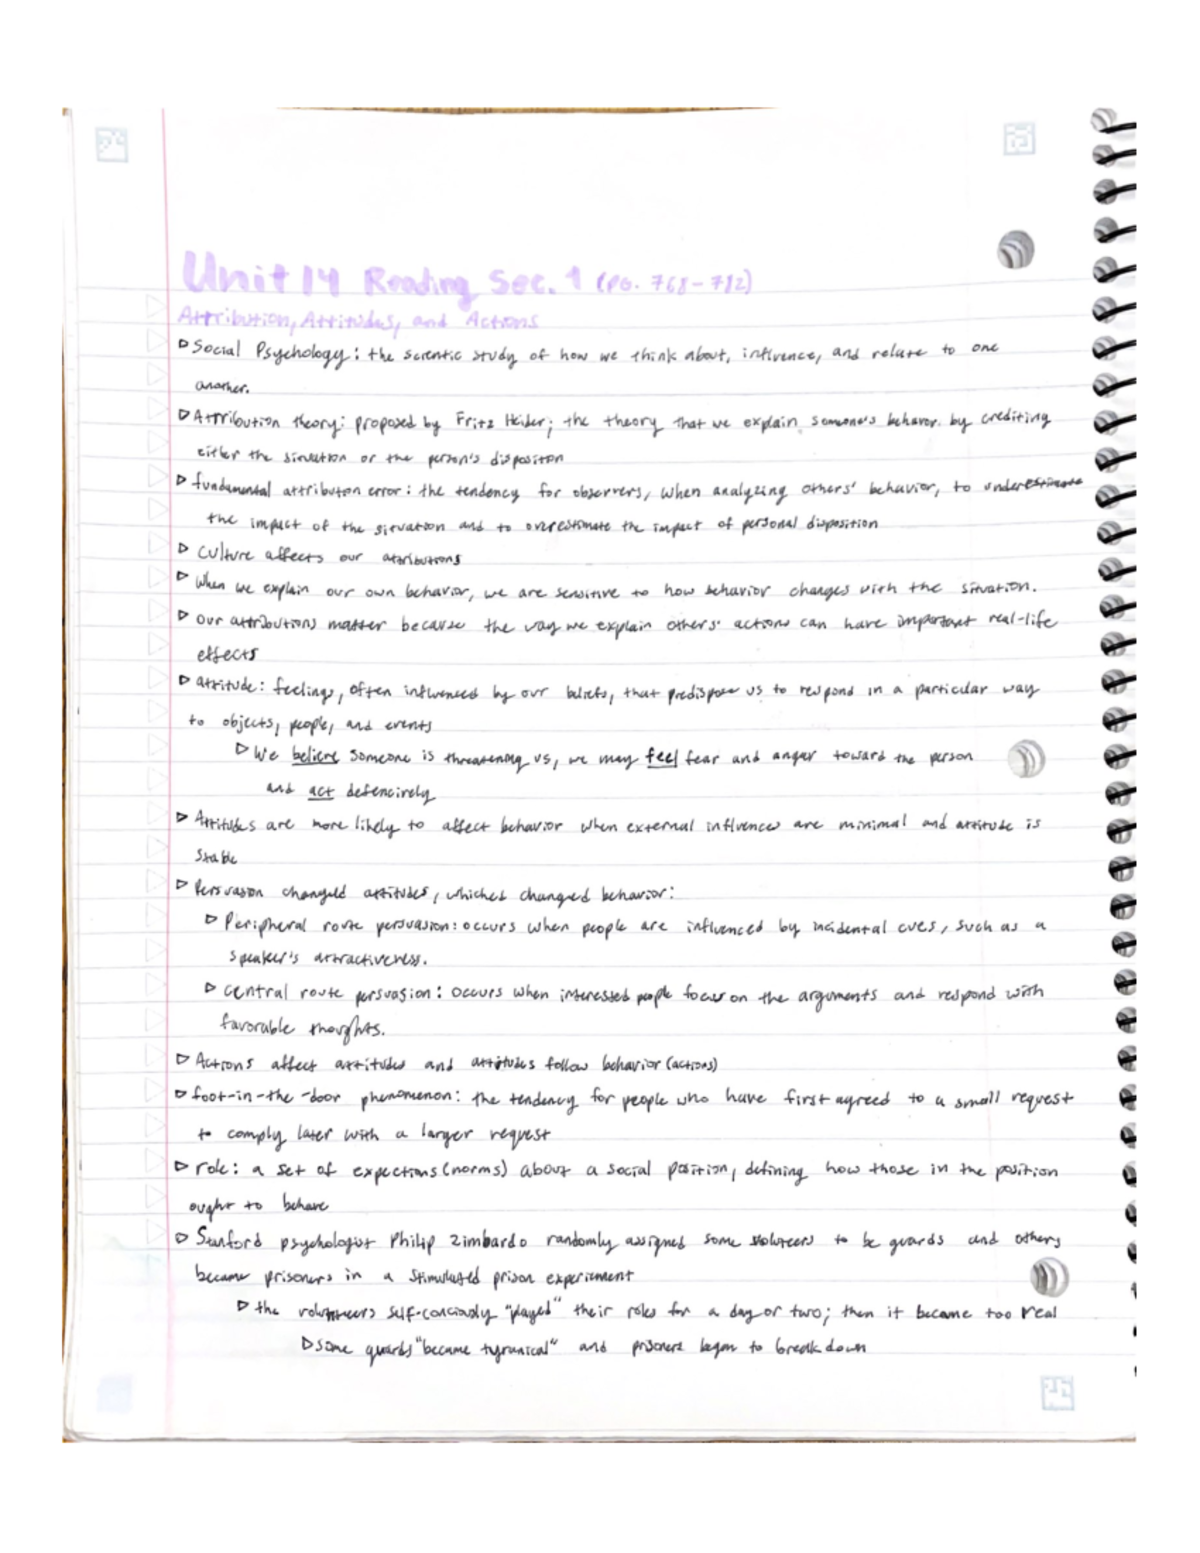 Unit 14 Reading Sec. 1 (pg. 768-782)
Attribution, Attitudes, and Actions
▷ Social Psychology: the scientic study of how we think about, influence, and relate to one
another.
▷ Attribution theory: proposed by Fritz Heider; the theory that we explain someone's behavior by crediting
either the situation or the person's dispositon
▷ fundamental attributon error: the tendency for observers, when analyzing others' behavior, to underestimate
the impact of the situation and to overestimate the impact of personal disposition
▷ Culture affects our attributions
▷ When we explain our own behavior, we are sensitive to how behavior changes with the situation.
▷ our attributions matter because the way we explain others' actions can have important real-life
effects
▷ attitude: feelings, often influenced by our beliefs, that predispose us to respond in a particular way
to objects, people, and events
▷ We believe someone is threatening us, we may feel fear and anger toward the person
and act defencively
▷ Attitudes are more likely to affect behavior when external influences are minimal and attitude is
stable
▷ Persuasion changed attitudes, whiched changed behavior:
▷ Peripheral route persuasion: occurs when people are influenced by incidental cues, such as a
speaker's attractiveness.
▷ central route persuasion: occurs when interested people focus on the arguments and respond with
favorable thoughts.
▷ Actions affect attitudes and attitudes follow behavior (actions)
▷ foot-in-the-door phenomenon: the tendency for people who have first agreed to a small request
to comply later with a larger request
▷ role: a set of expections (norms) about a social position, defining how those in the position
ought to behave
▷ Stanford psychologist Philip Zimbardo randomly assigned some volunteers to be guards and others
became prisoners in a stimulated prison experiement
▷ the volunteers self-conciously "played" their roles for a day or two; then it became too real
▷ some guards "became tyrunical" and prisoners began to break down